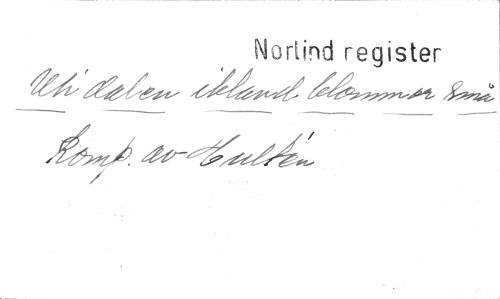 Norlind register
Uti dalen ibland blommor små
Komp. av Hultén